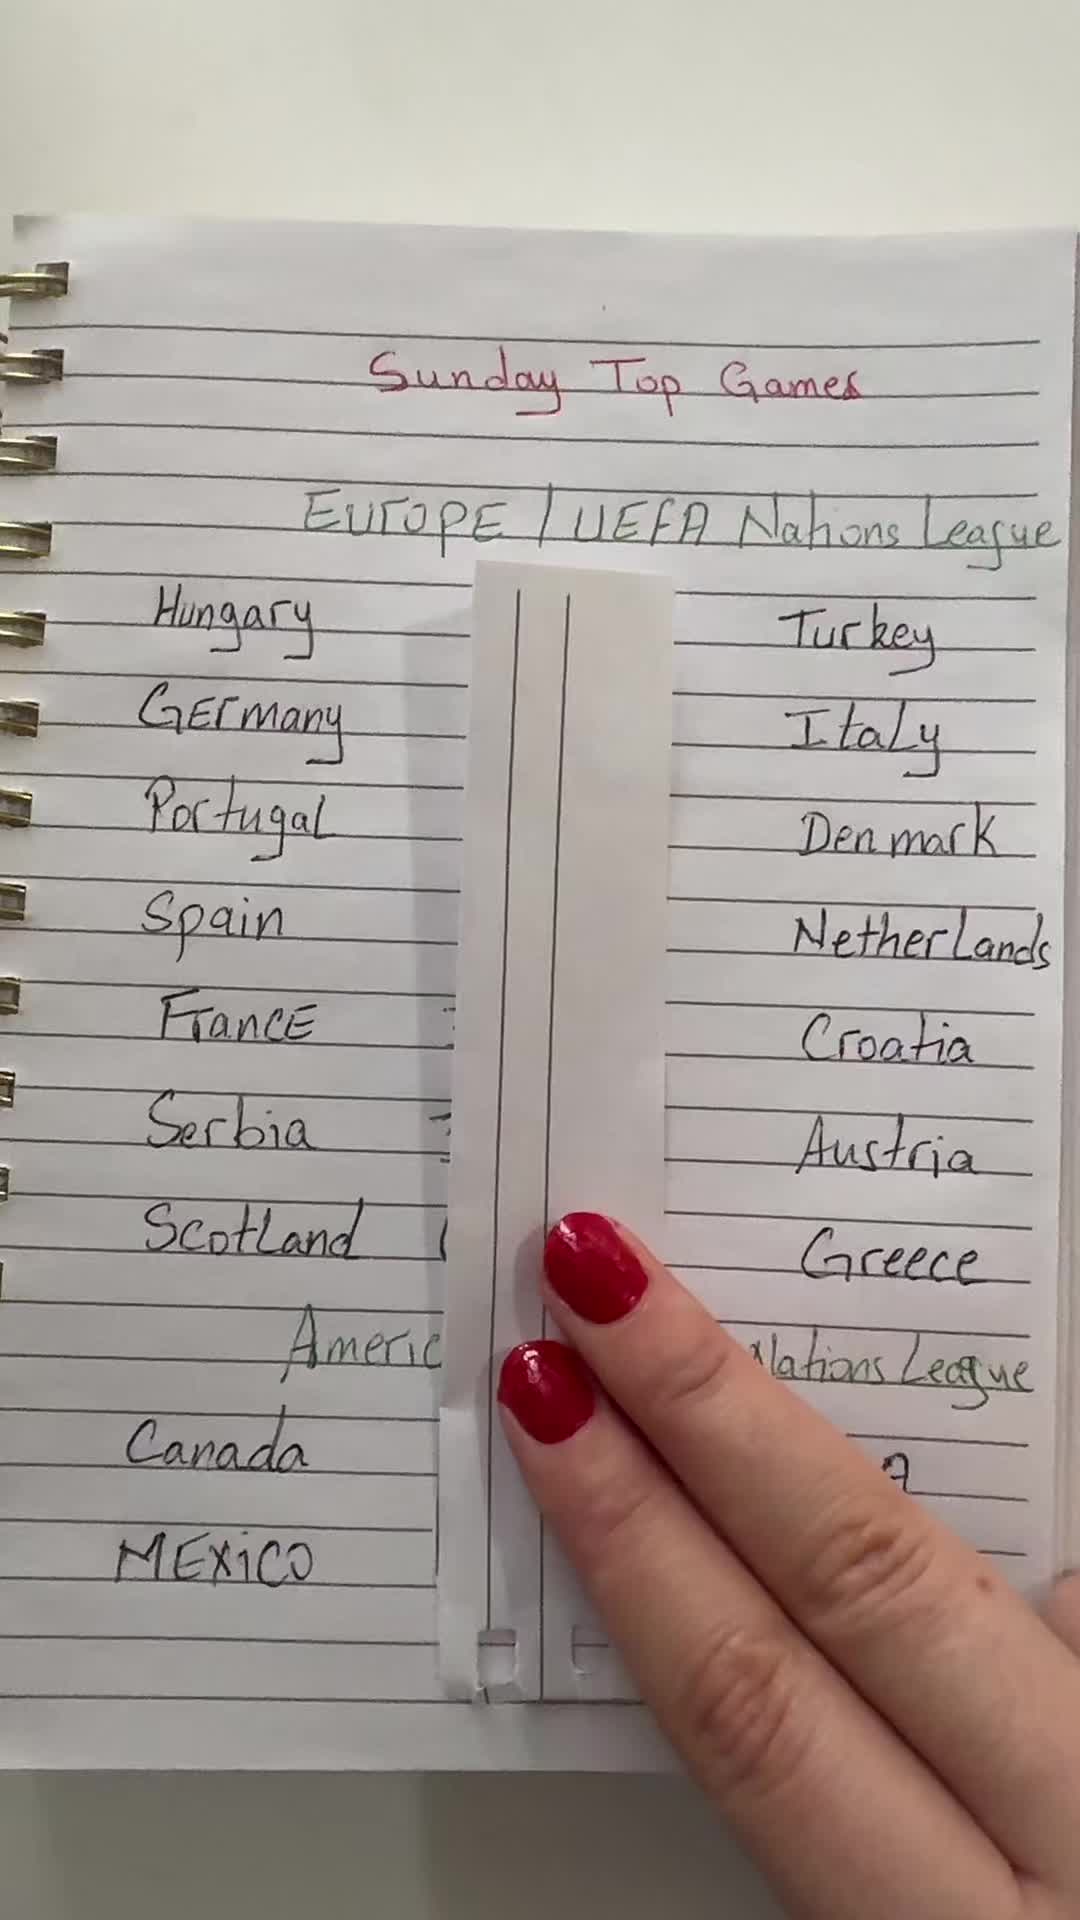 Sunday Top Games
EUROPE / UEFA Nations League
Hungary Turkey
Germany Italy
Portugal Denmark
Spain Netherlands
France Croatia
Serbia Austria
Scotland Greece
Americ Nations League
Canada
MExico